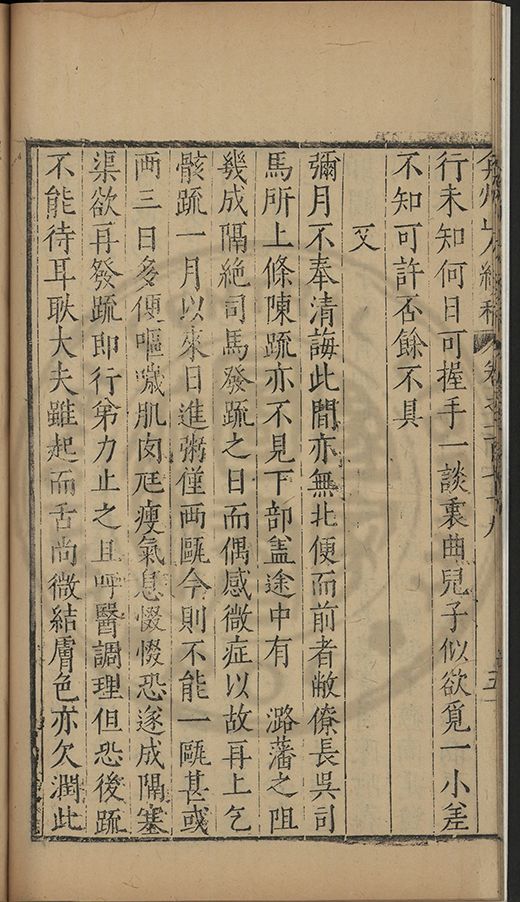 弇州山人續稿 卷之一百七十八 五
行未知何日可握手一談裏曲兒子似欲覓一小差
不知可許否餘不具
又
彌月不奉清誨此間亦無北便而前者敝僚長吳司
馬所上條陳疏亦不見下部盖途中有 潞藩之阻
幾成隔絶司馬發疏之日而偶感微症以故再上乞
骸疏一月以來日進粥僅兩甌今則不能一甌甚或
兩三日多便嘔噦肌肉尫瘦氣息惙惙恐遂成隔塞
渠欲再發疏即行弟力止之且呼醫調理但恐後疏
不能待耳耿大夫雖起而舌尚微結膚色亦欠潤此